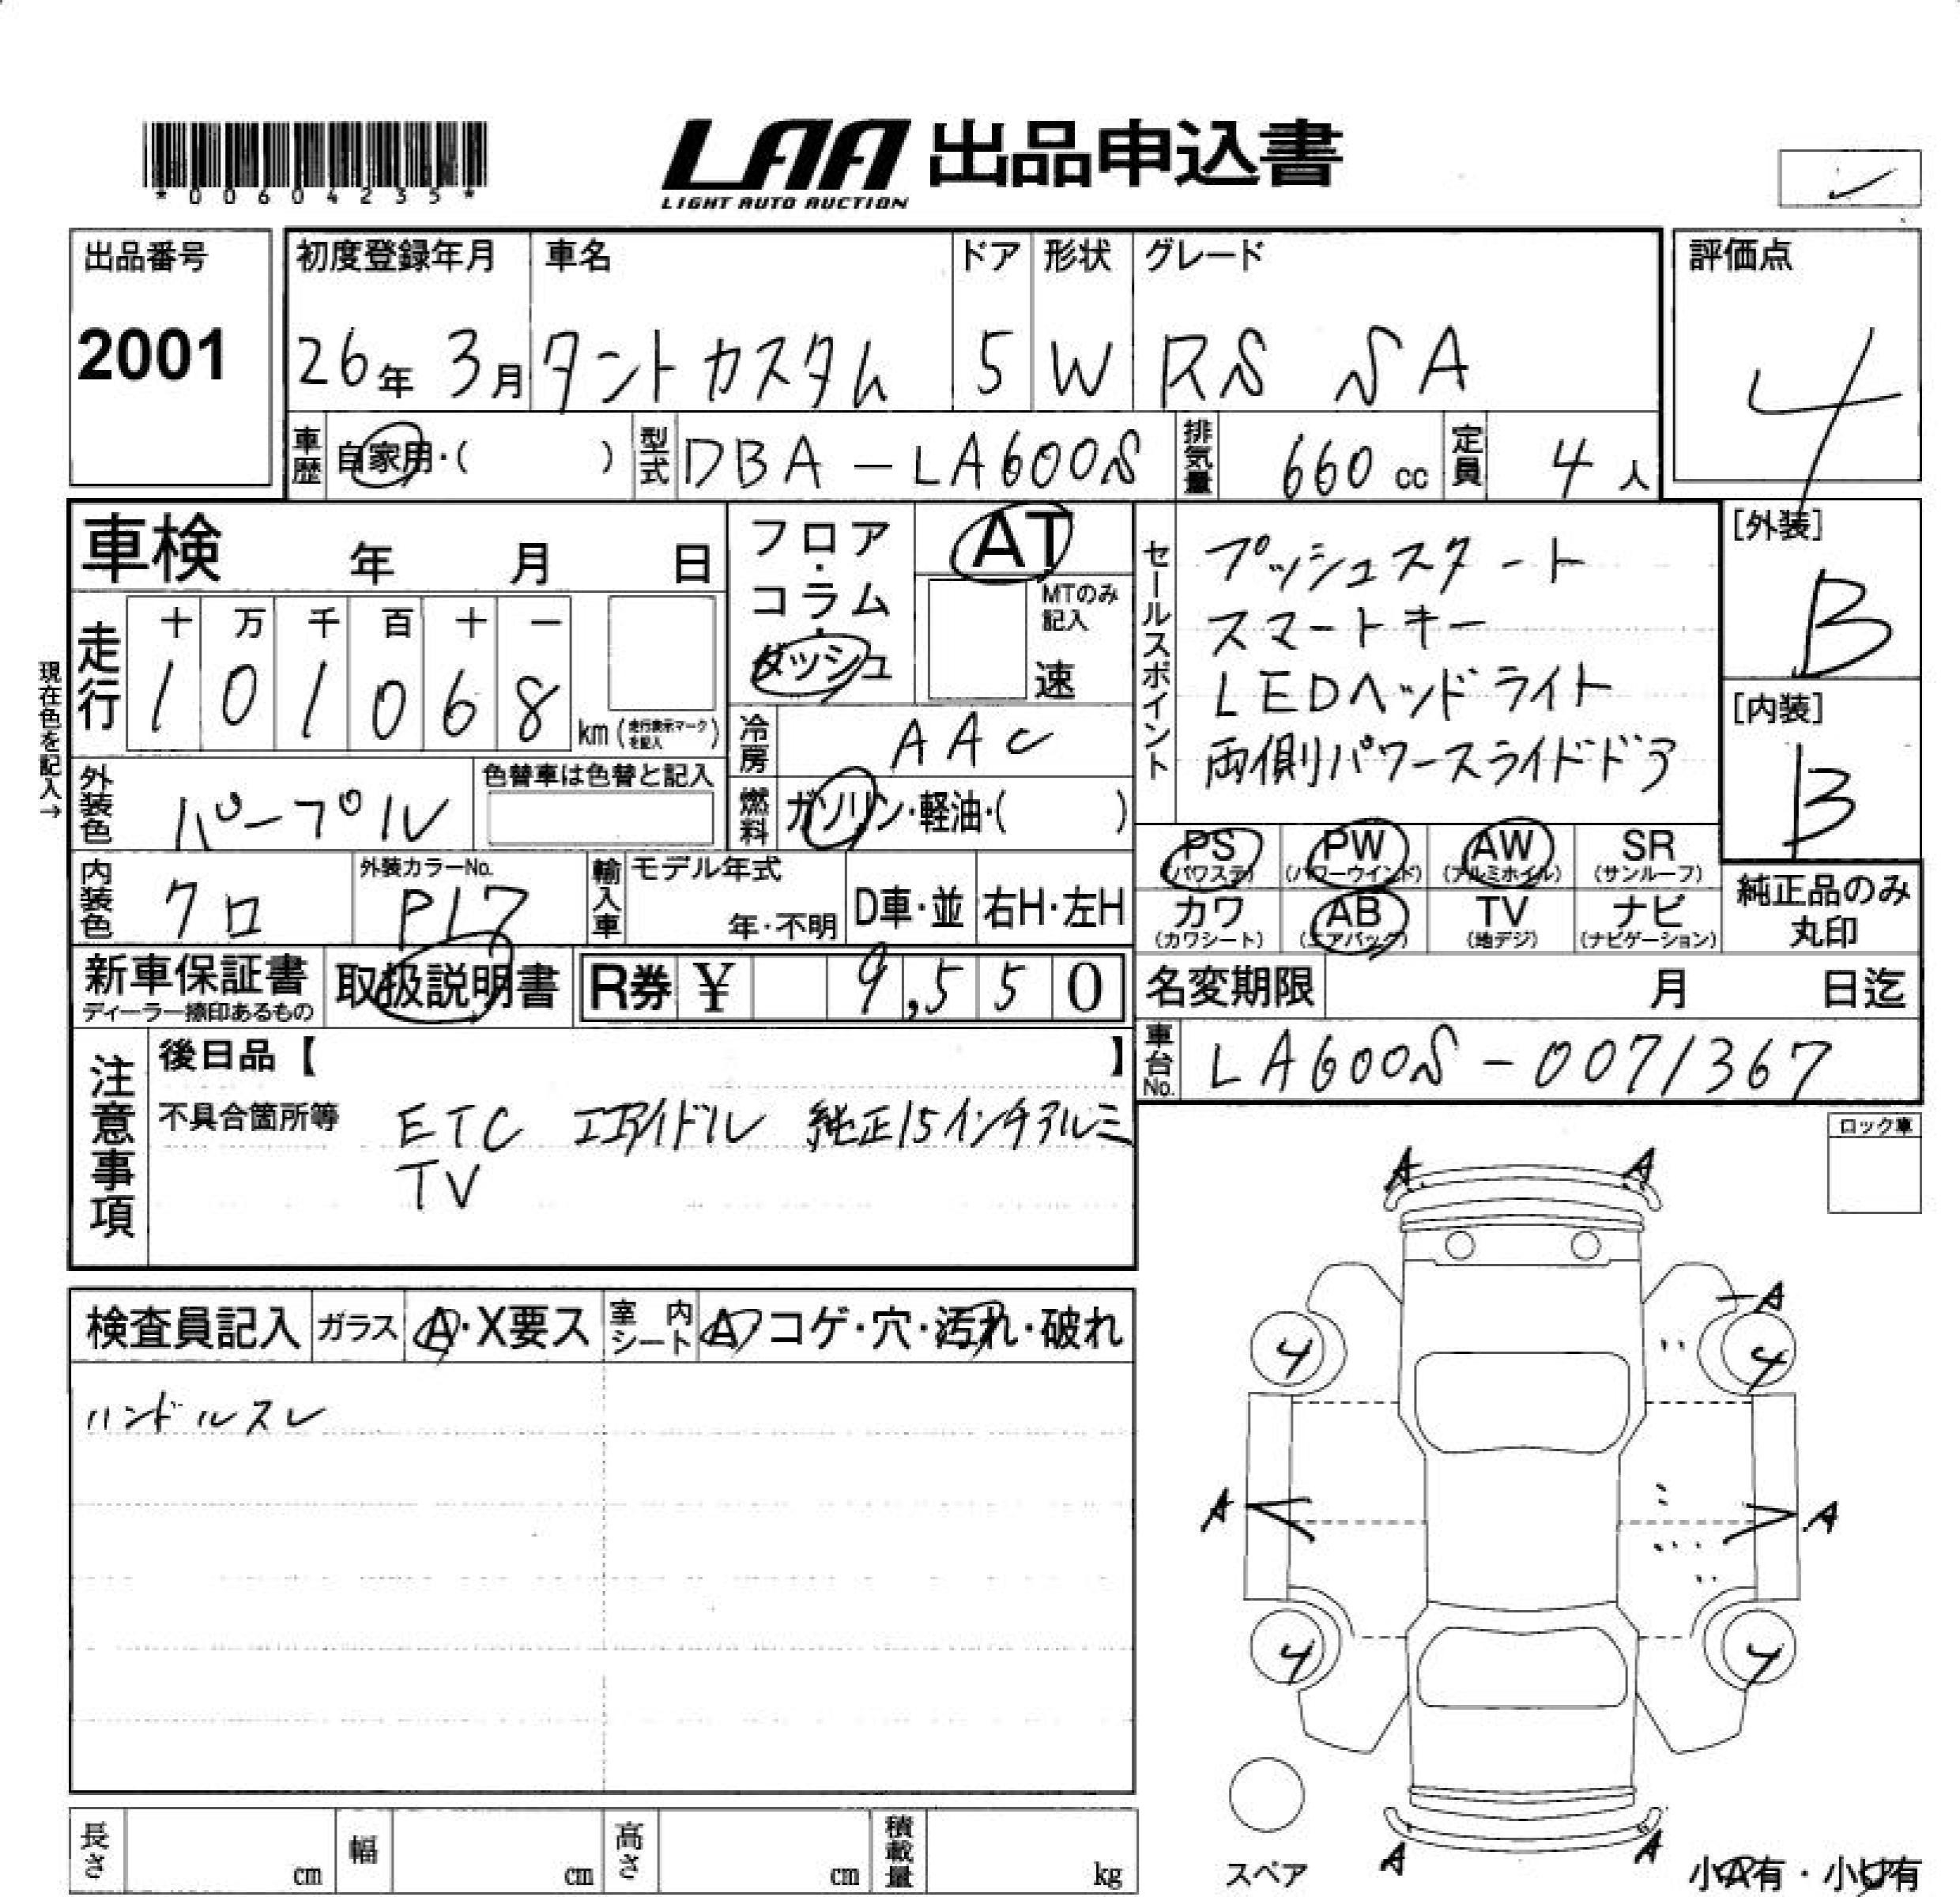 LAA 出品申込書
LIGHT AUTO AUCTION
*00604235*
出品番号
2001
初度登録年月
26年 3月
車名
タントカスタム
ドア
5
形状
W
グレード
RS SA
評価点
4
車歴 自家用・( )
型式 DBA-LA600S
排気量 660 cc
定員 4 人
車検 年 月 日
フロア・コラム・ダッシュ
AT
MTのみ記入
速
セールスポイント
プッシュスタート
スマートキー
LEDヘッドライト
両側パワースライドドア
[外装]
B
[内装]
B
現在色を記入→
走行
十 万 千 百 十 一
1 0 1 0 6 8
km (走行表示マークを記入)
冷房 AAC
外装色 パープル
色替車は色替と記入
燃料 ガソリン・軽油・( )
PS (パワステ)
PW (パワーウインド)
AW (アルミホイル)
SR (サンルーフ)
カワ (カワシート)
AB (エアバック)
TV (地デジ)
ナビ (ナビゲーション)
純正品のみ丸印
内装色 クロ
外装カラーNo. P17
輸入車 モデル年式
年・不明
D車・並
右H・左H
新車保証書
ディーラー捺印あるもの
取扱説明書
R券 ¥ 9,550
名変期限 月 日迄
車台No. LA600S-0071367
注意事項
後日品【 】
不具合箇所等
ETC エコアイドル 純正15インチアルミ
TV
ロック車
検査員記入
ガラス A・X要ス
室内シート A コゲ・穴・汚れ・破れ
ハンドルスレ
A A
A
4 4
A A
4 4
A A
スペア
小A有・小U有
長さ cm
幅 cm
高さ cm
積載量 kg